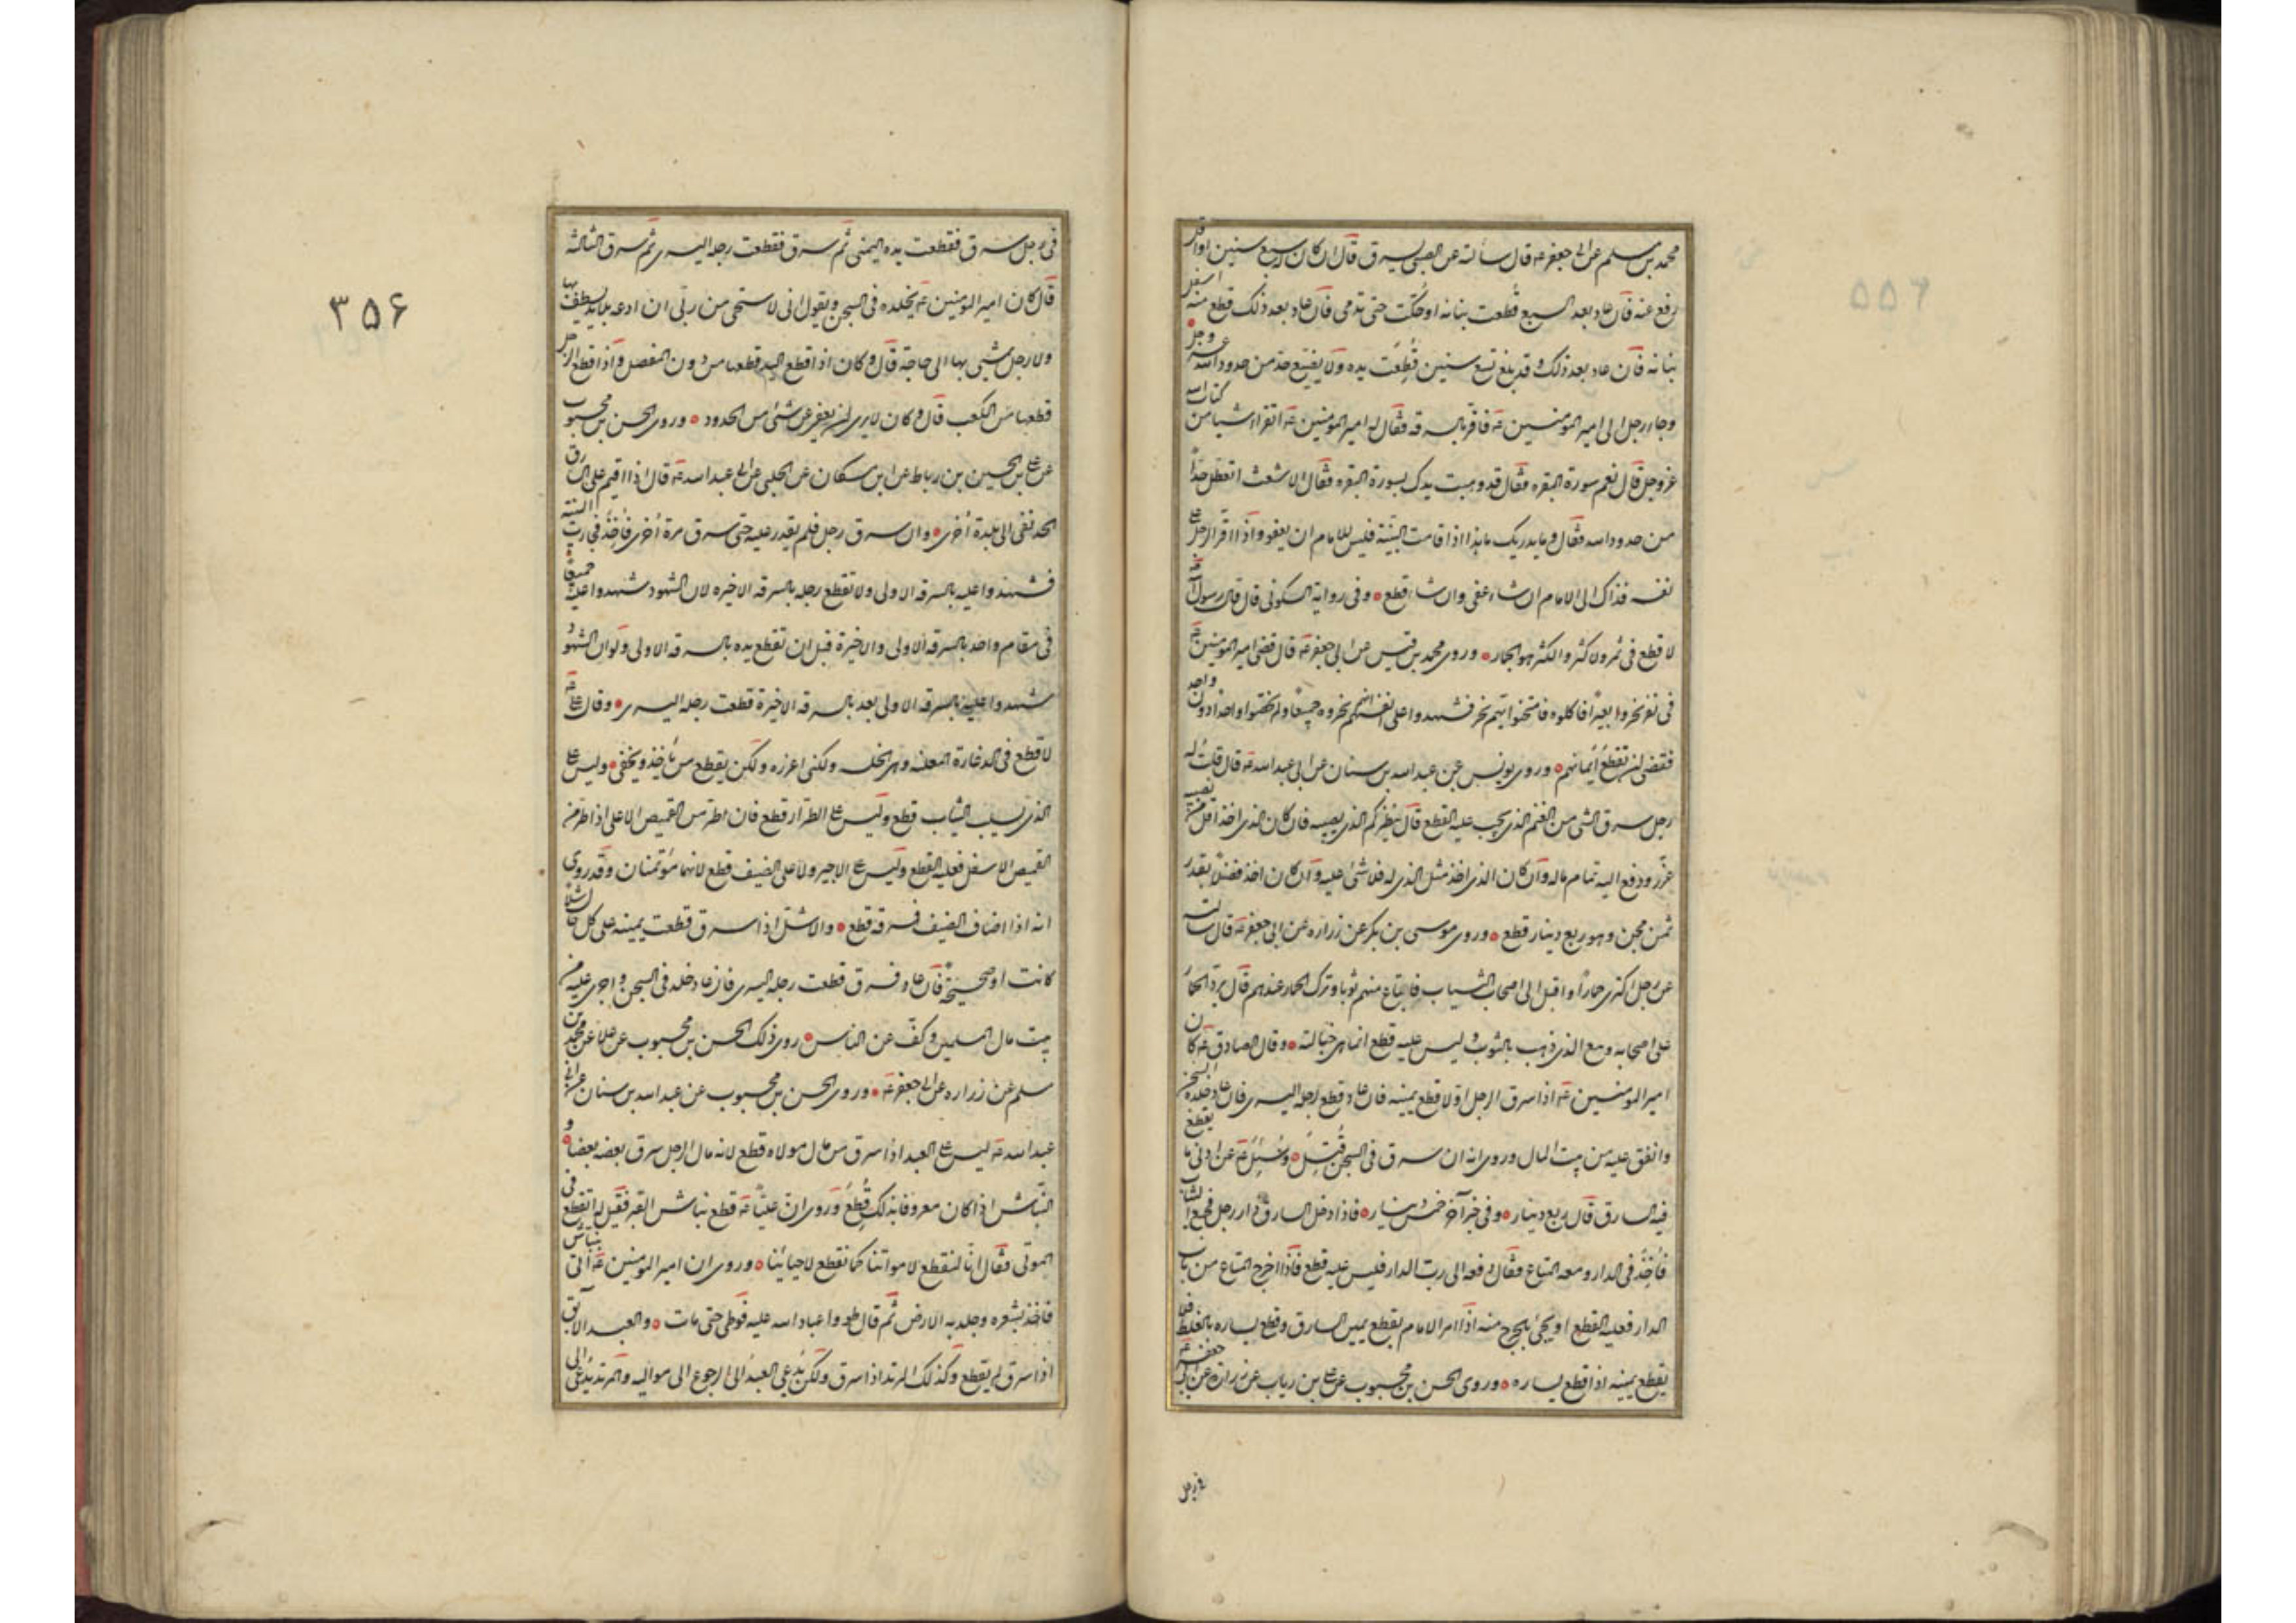 محمد بن مسلم عن ابى جعفر ع قال سألته عن الصبى يسرق قال ان كان له سبع سنين او اقل
رفع عنه فان عاد بعد السبع قطعت بنانه او حكت حتى تدمى فان عاد بعد ذلك قطع منه اسفل
بنانه فان عاد بعد ذلك و قد بلغ تسع سنين قطعت يده ولا يضيع حد من حدود الله عز وجل
وجاء رجل الى امير المؤمنين ع فاقر بالسرقه فقال له امير المؤمنين ع اتقراء شيا من كتاب الله
عز وجل قال نعم سورة البقره فقال قد وهبت يدك بسورة البقره فقال الاشعث اتعطل حدا
من حدود الله فقال و ما يدريك ما هذا اذا قامت البينة فليس للامام ان يعفو و اذا اقر الرجل على
نفسه فذاك الى الامام ان شاء عفى وان شاء قطع وفى رواية السكونى قال قال رسول الله
لا قطع فى ثمر ولا كثر والكثر هو الجمار وروى محمد بن قيس عن ابى جعفر ع قال قضى امير المؤمنين ع
فى نفر نحروا بعيرا فاكلوه فامتحنوا ايهم نحر فشهدوا على انفسهم انهم نحروه جميعا ولم يخصوا واحدا دون واحد
فقضى ان تقطع ايمانهم وروى يونس عن عبد الله بن سنان عن ابى عبد الله ع قال قلت له
رجل سرق الشى من الغنم الذى يجب عليه القطع قال ينظر كم الذى يصيبه فان كان الذى اخذ اقل من نصيبه
عزر ودفع اليه تمام ماله وان كان الذى اخذ مثل الذى له فلا شئ عليه وان كان اخذ فضلا بقدر
ثمن مجن وهو ربع دينار قطع وروى موسى بن بكر عن زراره عن ابى جعفر ع قال سالته
عن رجل اكترى حمارا و اقبل الى اصحاب الثياب فابتاع منهم ثوبا وترك الحمار عندهم قال يرد الحمار
على اصحابه ويتبع الذى ذهب بالثوب و ليس عليه قطع انما هى خيانة وقال الصادق ع كان
امير المؤمنين ع اذا سرق الرجل اولا قطع يمينه فان عاد قطع رجله اليسرى فان عاد خلده السجن
وانفق عليه من بيت المال وروى انه ان سرق فى السجن قتل وسئل ع عن ادنى ما يقطع
فيه السارق قال ربع دينار وفى خبر آخر خمس دينار فاذا دخل السارق دار رجل فجمع الثياب
فأخذ فى الدار ومعه المتاع فقال دفعه الى رب الدار فليس عليه قطع فاذا اخرج المتاع من باب
الدار فعليه القطع او يجئ بالمخرج منه اذا امر الامام بقطع يمين السارق وقطع يساره بالغلط فلا
يقطع يمينه اذا قطع يساره وروى الحسن بن محبوب عن على بن رياب عن زرارة عن ابى جعفر ع
فى رجل
۳۵۶
فى رجل سرق فقطعت يده اليمنى ثم سرق فقطعت رجله اليسرى ثم سرق الثالثة
قال كان امير المؤمنين ع يخلده فى السجن و يقول انى لاستحى من ربى ان ادعه بلا يد يستنظف بها
ولا رجل يمشى بها الى حاجة قال و كان اذا قطع اليد قطعها من دون المفصل و اذا قطع الرجل
قطعها من الكعب قال و كان لا يرى ان يعفى عن شئ من الحدود وروى الحسن بن محبوب
عن على بن الحسين بن رباط عن ابن مسكان عن الحلبى عن ابى عبد الله ع قال اذا اقيم على السارق
الحد نفى الى بلدة أخرى وان سرق رجل فلم يقدر عليه حتى سرق مرة أخرى فأخذ فجاءت البينة
فشهدوا عليه بالسرقه الاولى ولا تقطع رجله بالسرقه الاخيره لان الشهود شهدوا عليه جميعا
فى مقام واحد بالسرقه الاولى والاخيرة قبل ان تقطع يده بالسرقه الاولى ولو ان الشهود
شهدوا عليه بالسرقه الاولى بعد بالسرقه الاخيرة قطعت رجله اليسرى وقال على ع
لا قطع فى الدغارة المعلنه وهى الخلسه ولكنى اعزره ولكن يقطع من ياخذ ويخفى وليس على
الذى يسلب الثياب قطع وليس على الطرار قطع فان طر من القميص الاعلى اذا طر من
القميص الاسفل فعليه القطع وليس على الاجير ولا على الضيف قطع لانهما مؤتمنان وقد روى
انه اذا اضاف الضيف فسرقه قطع والاشل اذا سرق قطعت يمينه على كل حال شلا
كانت او صحيحة فان عاد فسرق قطعت رجله اليسرى فان عاد خلد فى السجن و اجرى عليه من
بيت مال المسلمين وكف عن الناس روى ذلك الحسن بن محبوب عن علا عن محمد بن
مسلم عن زراره عن ابى جعفر ع وروى الحسن بن محبوب عن عبد الله بن سنان عن ابى
عبد الله ع ليس على العبد اذا سرق من مال مولاه قطع لانه مال الرجل سرق بعضه بعضا و
النباش اذا كان معروفا بذلك قطع وروى ان عليا ع قطع نباش القبر فقيل له اتقطع فى
الموتى فقال انا لنقطع لامواتنا كما نقطع لاحيائنا وروى ان امير المؤمنين ع اتى بنباش
فاخذ بشعره وجلد به الارض ثم قال طؤوا عباد الله عليه فوطى حتى مات والعبد الابق
اذا سرق لم يقطع وكذلك المرتد اذا سرق ولكن يدعى العبد الى الرجوع الى مواليه والمرتد يدعى الى